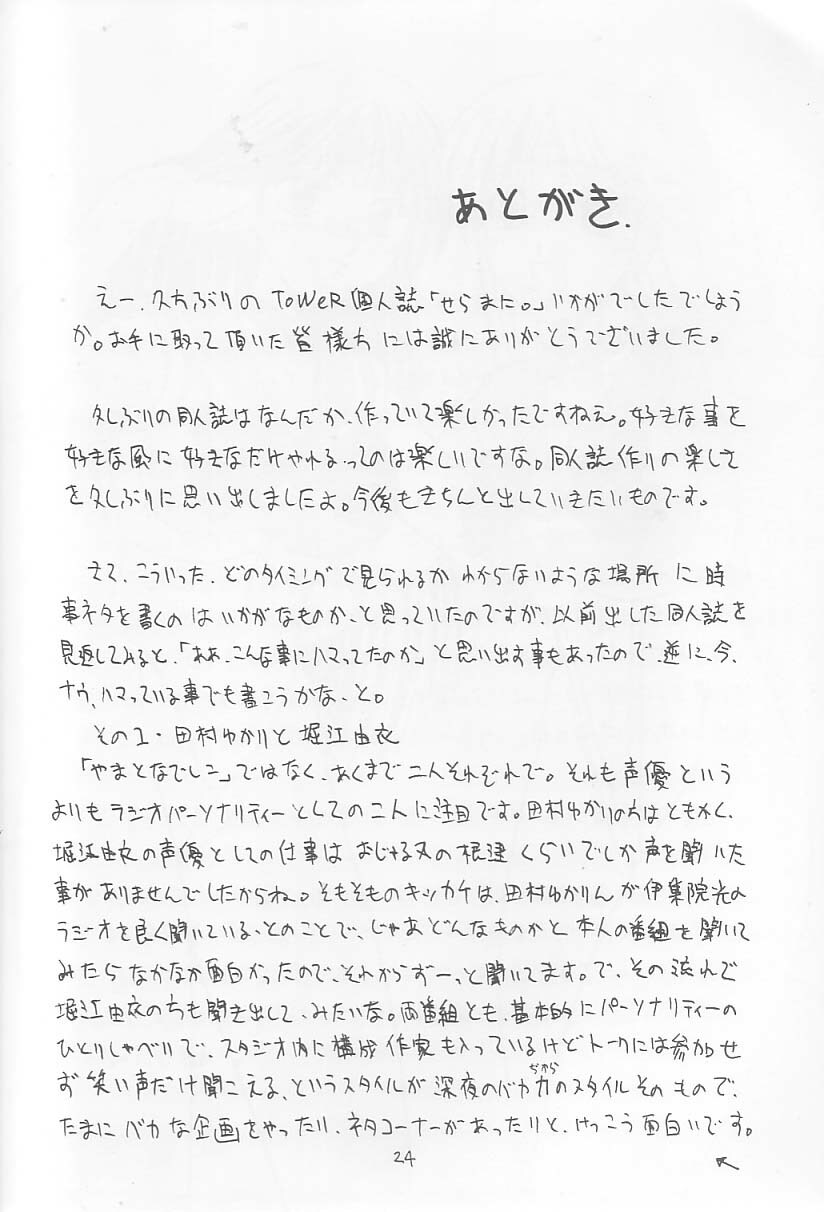 あとがき.
えー、久方ぶりのToWeR個人誌「せらまに。」いかがでしたでしょう
か。お手に取って頂いた皆様方には誠にありがとうございました。
久しぶりの同人誌はなんだか、作っていて楽しかったですねえ。好きな事を
好きな風に好きなだけやれる、ってのは楽しいですな。同人誌作りの楽しさ
を久しぶりに思い出しましたよ。今後もきちんと出していきたいものです。
さて、こういった、どのタイミングで見られるかわからないような場所に時
事ネタを書くのはいかがなものか、と思っていたのですが、以前出した同人誌を
見返してみると、「ああ、こんな事にハマってたのか」と思い出す事もあったので、逆に、今、
ナウ、ハマっている事でも書こうかな、と。
その1・田村ゆかりと堀江由衣
「やまとなでしこ」ではなく、あくまで二人それぞれで。それも声優という
よりもラジオパーソナリティーとしての二人に注目です。田村ゆかりの方はともかく、
堀江由衣の声優としての仕事はおじゃる丸の
くらいでしか声を聞いた
事がありませんでしたからね。そもそものキッカケは、田村ゆかりんが伊集院光の
ラジオを良く聞いている、とのことで、じゃあどんなものかと本人の番組を聞いて
みたらなかなか面白かったので、それからずーっと聞いてます。で、その流れで
堀江由衣の方も聞き出して、みたいな。両番組とも、基本的にパーソナリティーの
ひとりしゃべりで、スタジオ内に構成作家も入っているけどトークには参加せ
ず笑い声だけ聞こえる、というスタイルが深夜のバカ力(ぢから)のスタイルそのもので、
たまにバカな企画をやったり、ネタコーナーがあったりと、けっこう面白いです。
24
↖